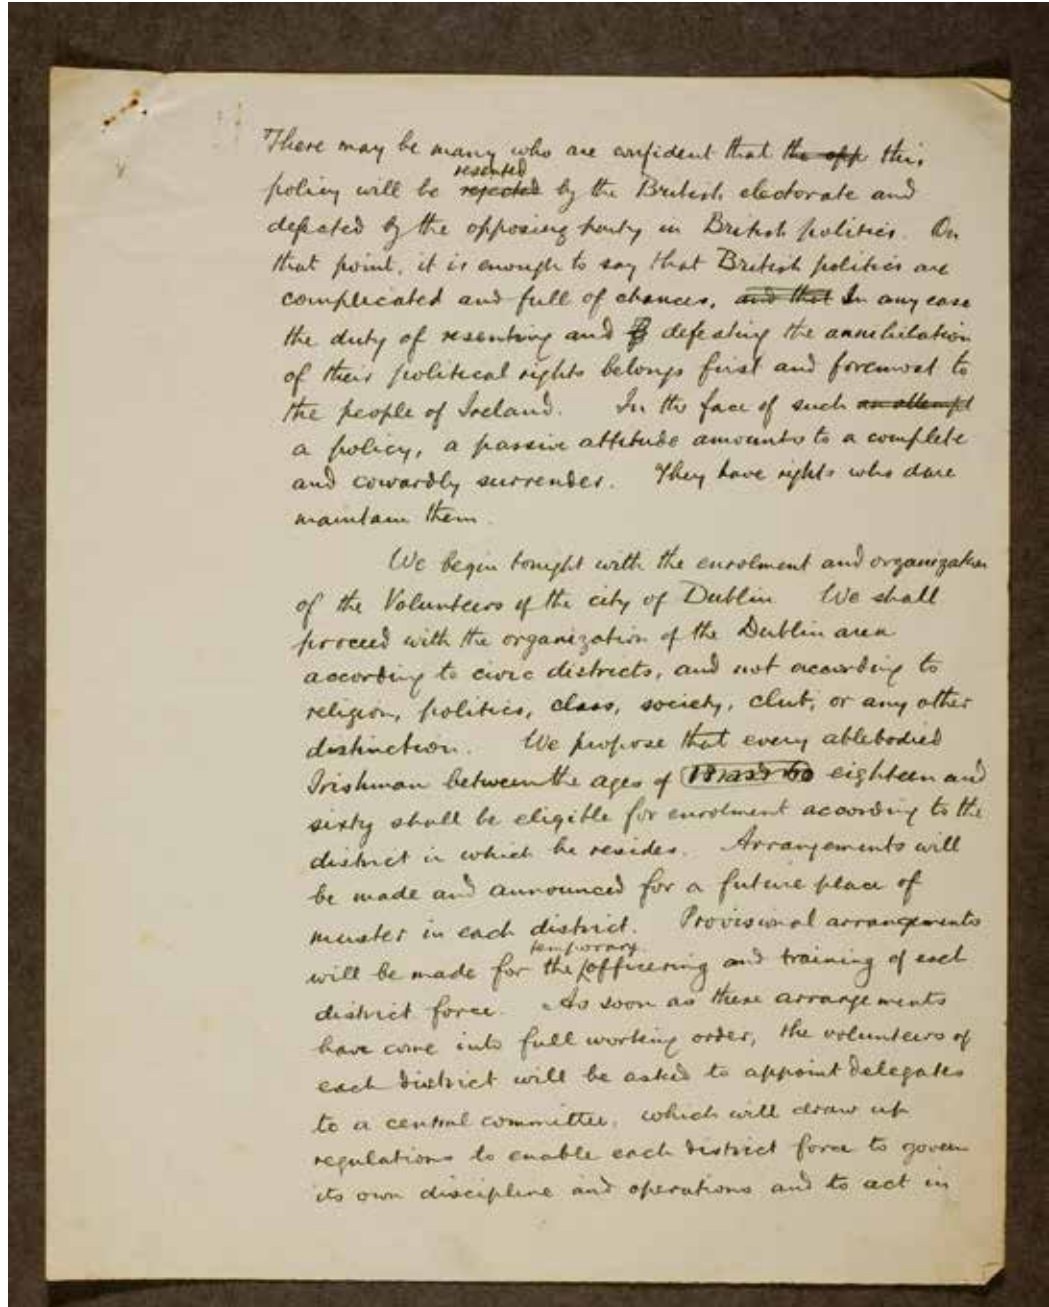 There may be many who are confident that the opp this
resented
policy will be rejected by the British electorate and
defeated by the opposing party in British politics. On
that point, it is enough to say that British politics are
complicated and full of chances, and that In any case
the duty of resenting and defeating the annihilation
of their political rights belongs first and foremost to
the people of Ireland. In the face of such an attempt
a policy, a passive attitude amounts to a complete
and cowardly surrender. They have rights who dare
maintain them.
We begin tonight with the enrolment and organization
of the Volunteers of the city of Dublin. We shall
proceed with the organization of the Dublin area
according to civic districts, and not according to
religion, politics, class, society, club, or any other
distinction. We propose that every ablebodied
Irishman between the ages of 18 and 60 eighteen and
sixty shall be eligible for enrolment according to the
district in which he resides. Arrangements will
be made and announced for a future place of
muster in each district. Provisional arrangements
temporary
will be made for the officering and training of each
district force. As soon as these arrangements
have come into full working order, the volunteers of
each district will be asked to appoint delegates
to a central committee, which will draw up
regulations to enable each district force to govern
its own discipline and operations and to act in